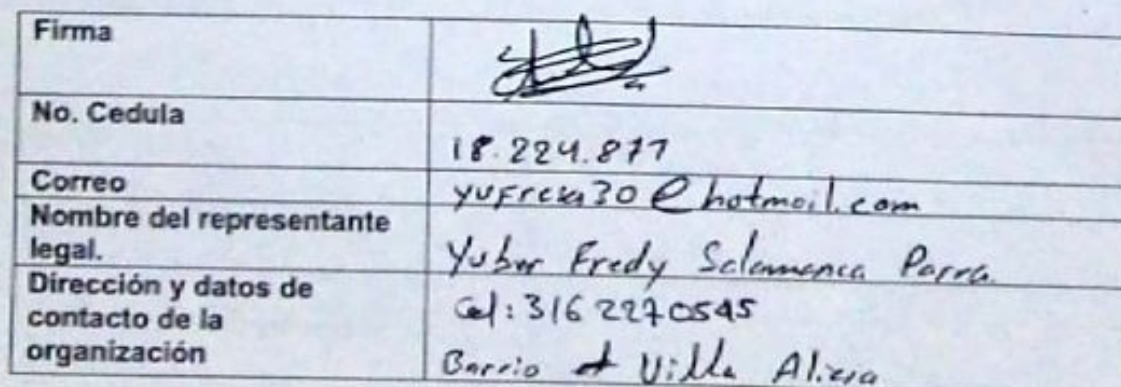 Firma
No. Cedula
18.224.877
Correo
yufresa30@hotmail.com
Nombre del representante
legal.
Yuber Fredy Salamanca Parra.
Dirección y datos de
contacto de la
organización
Cel: 316 2270545
Barrio Villa Alicia